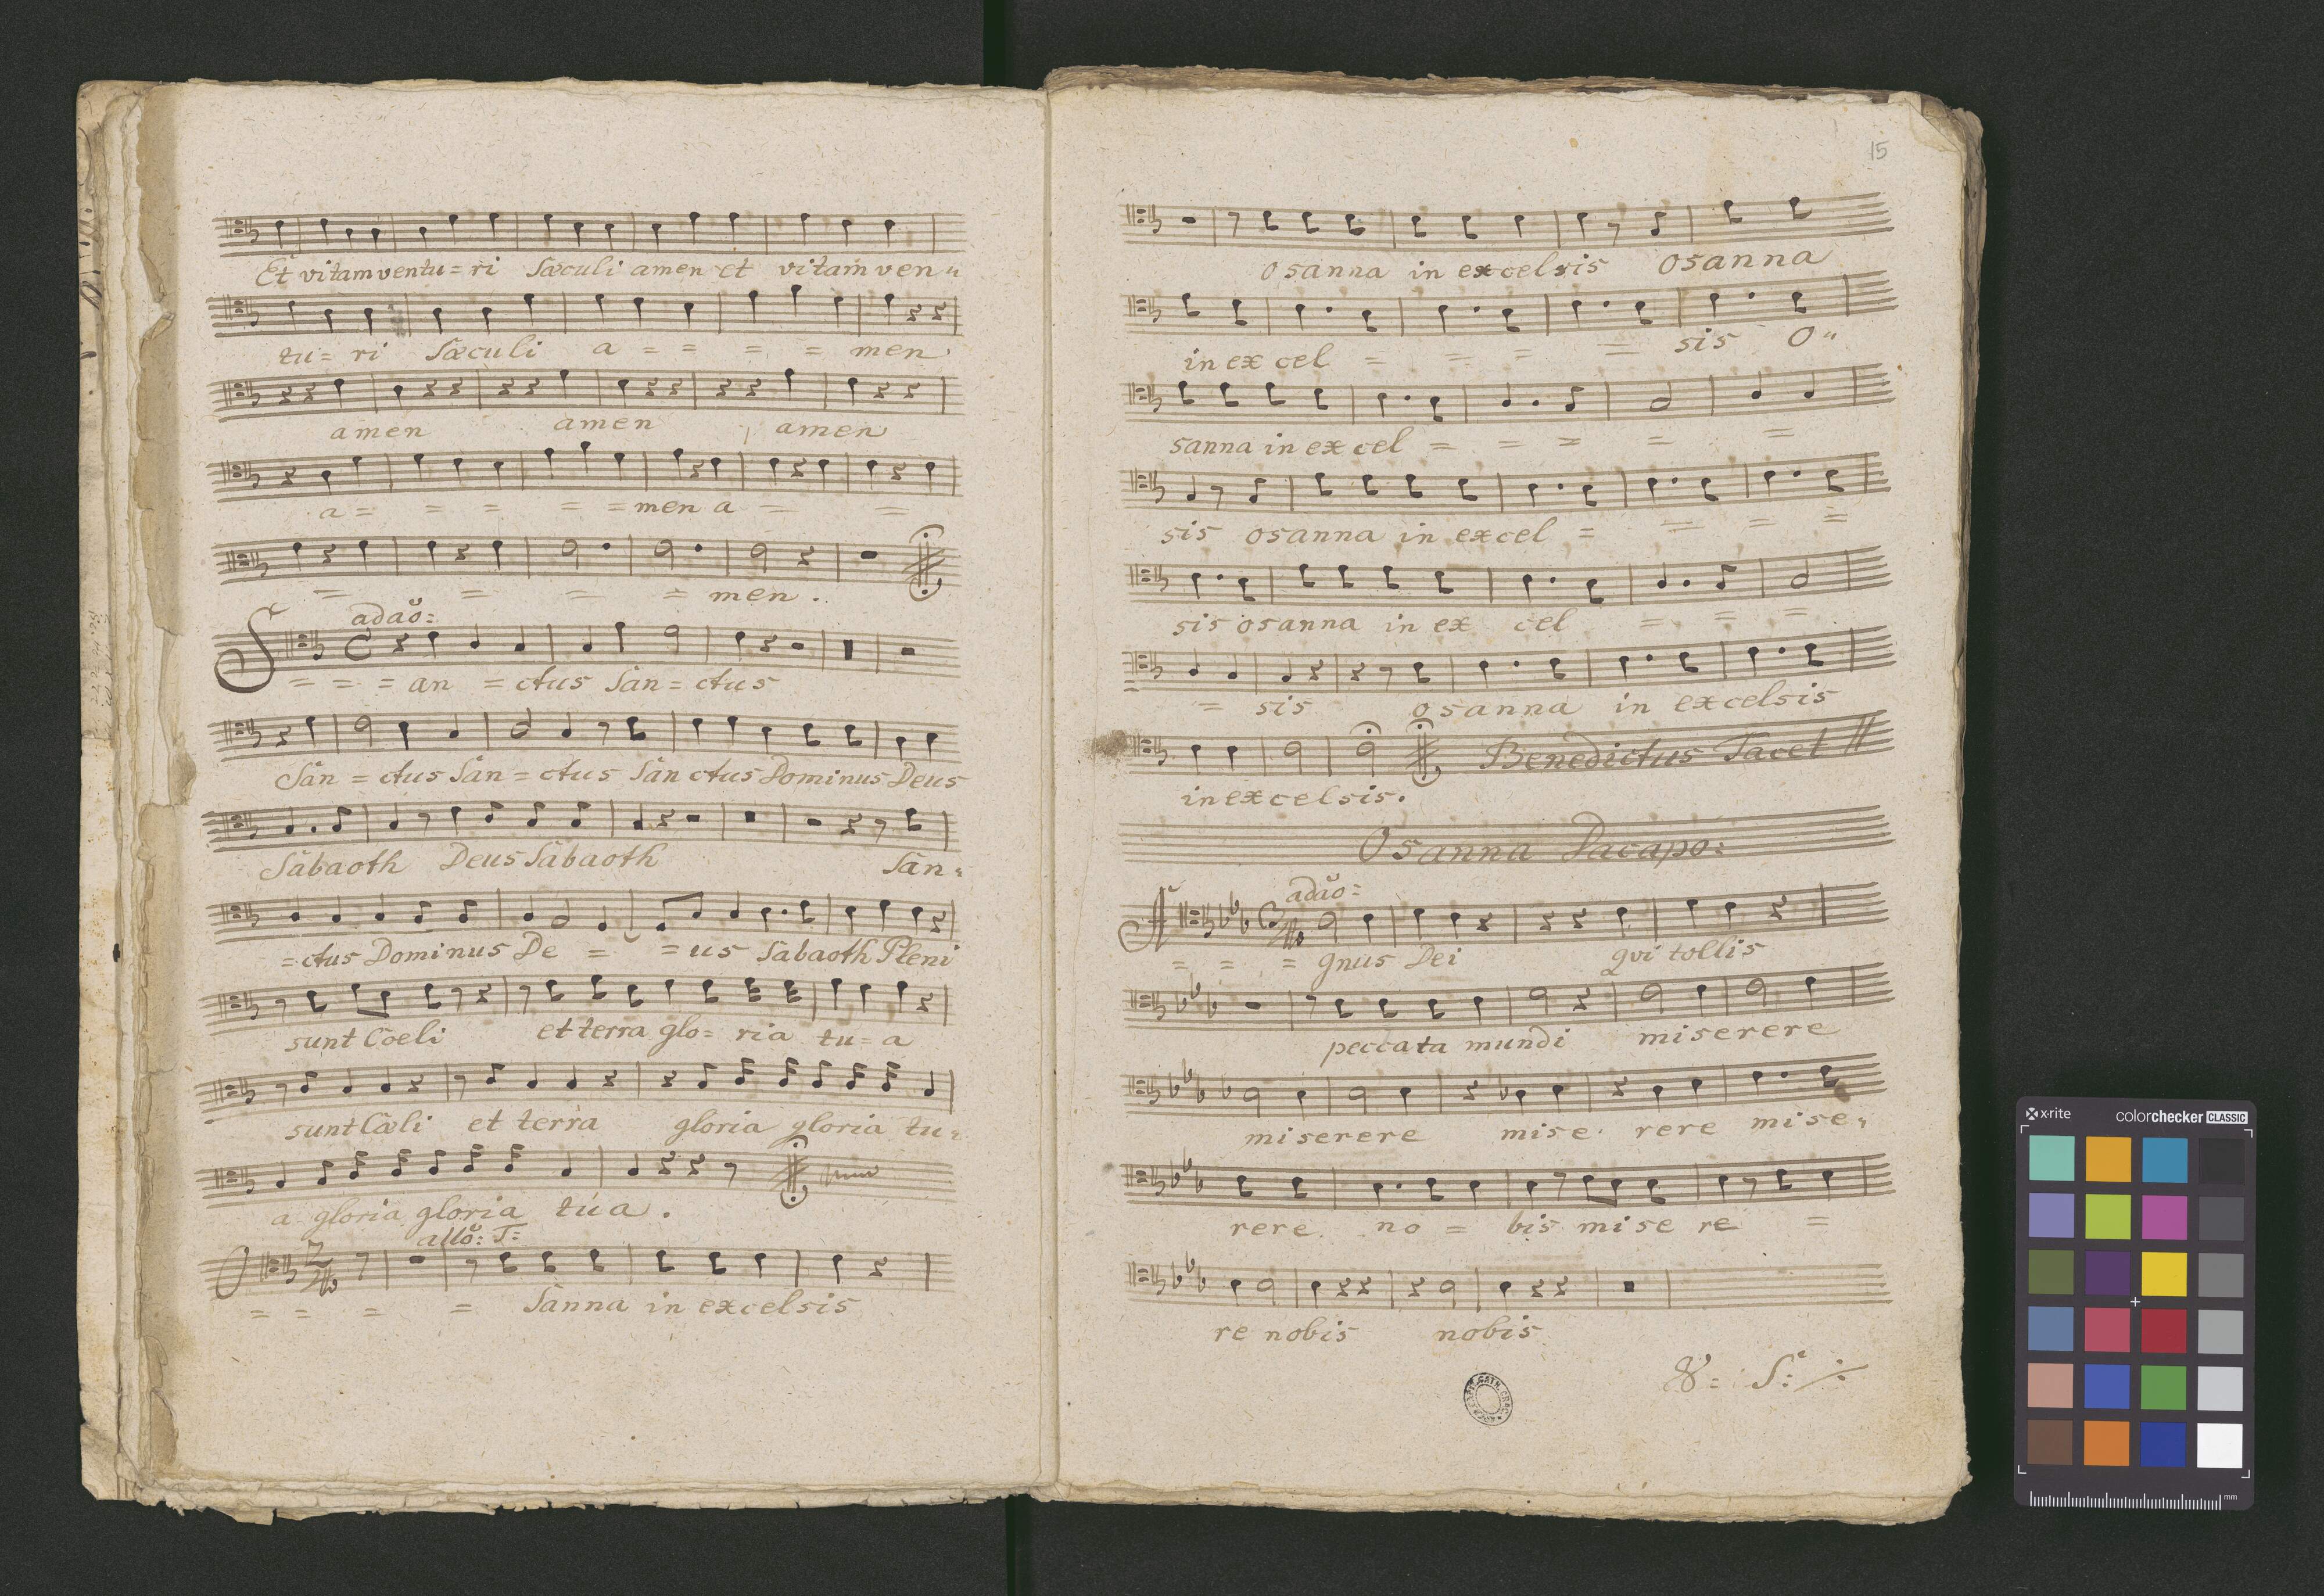 Et vitam ventu = ri Sæculi amen et vitam ven =
tu = ri Sæculi a = = = = men
amen amen amen
a = = = = = men a = =
= = = = men .
adao:
S = = = an = ctus San = ctus
San = ctus San = ctus San ctus Dominus Deus
Sabaoth Deus Sabaoth San =
= ctus Dominus De = = us Sabaoth Pleni
sunt Coeli et terra glo = ria tu = a
sunt Cæli et terra gloria gloria tu =
a gloria gloria tua .
allo: T:
O = = = = Sanna in excelsis
15
osanna in excelsis osanna
in ex cel = = = = sis O =
sanna in ex cel = = = = =
sis osanna in excel = = = =
sis osanna in ex cel = = =
= sis osanna in excelsis
Benedictus Tacet
in excelsis .
Osanna Dacapo:
adao:
A = = = gnus Dei qui tollis
peccata mundi miserere
miserere mise rere mise =
rere no = bis mise re =
re nobis nobis
V: S:
x·rite colorchecker CLASSIC
mm